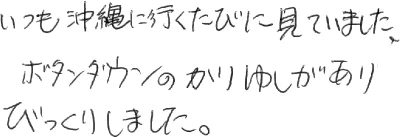 いつも沖縄に行くたびに見ていました、
ボタンダウンのかりゆしがあり
びっくりしました。